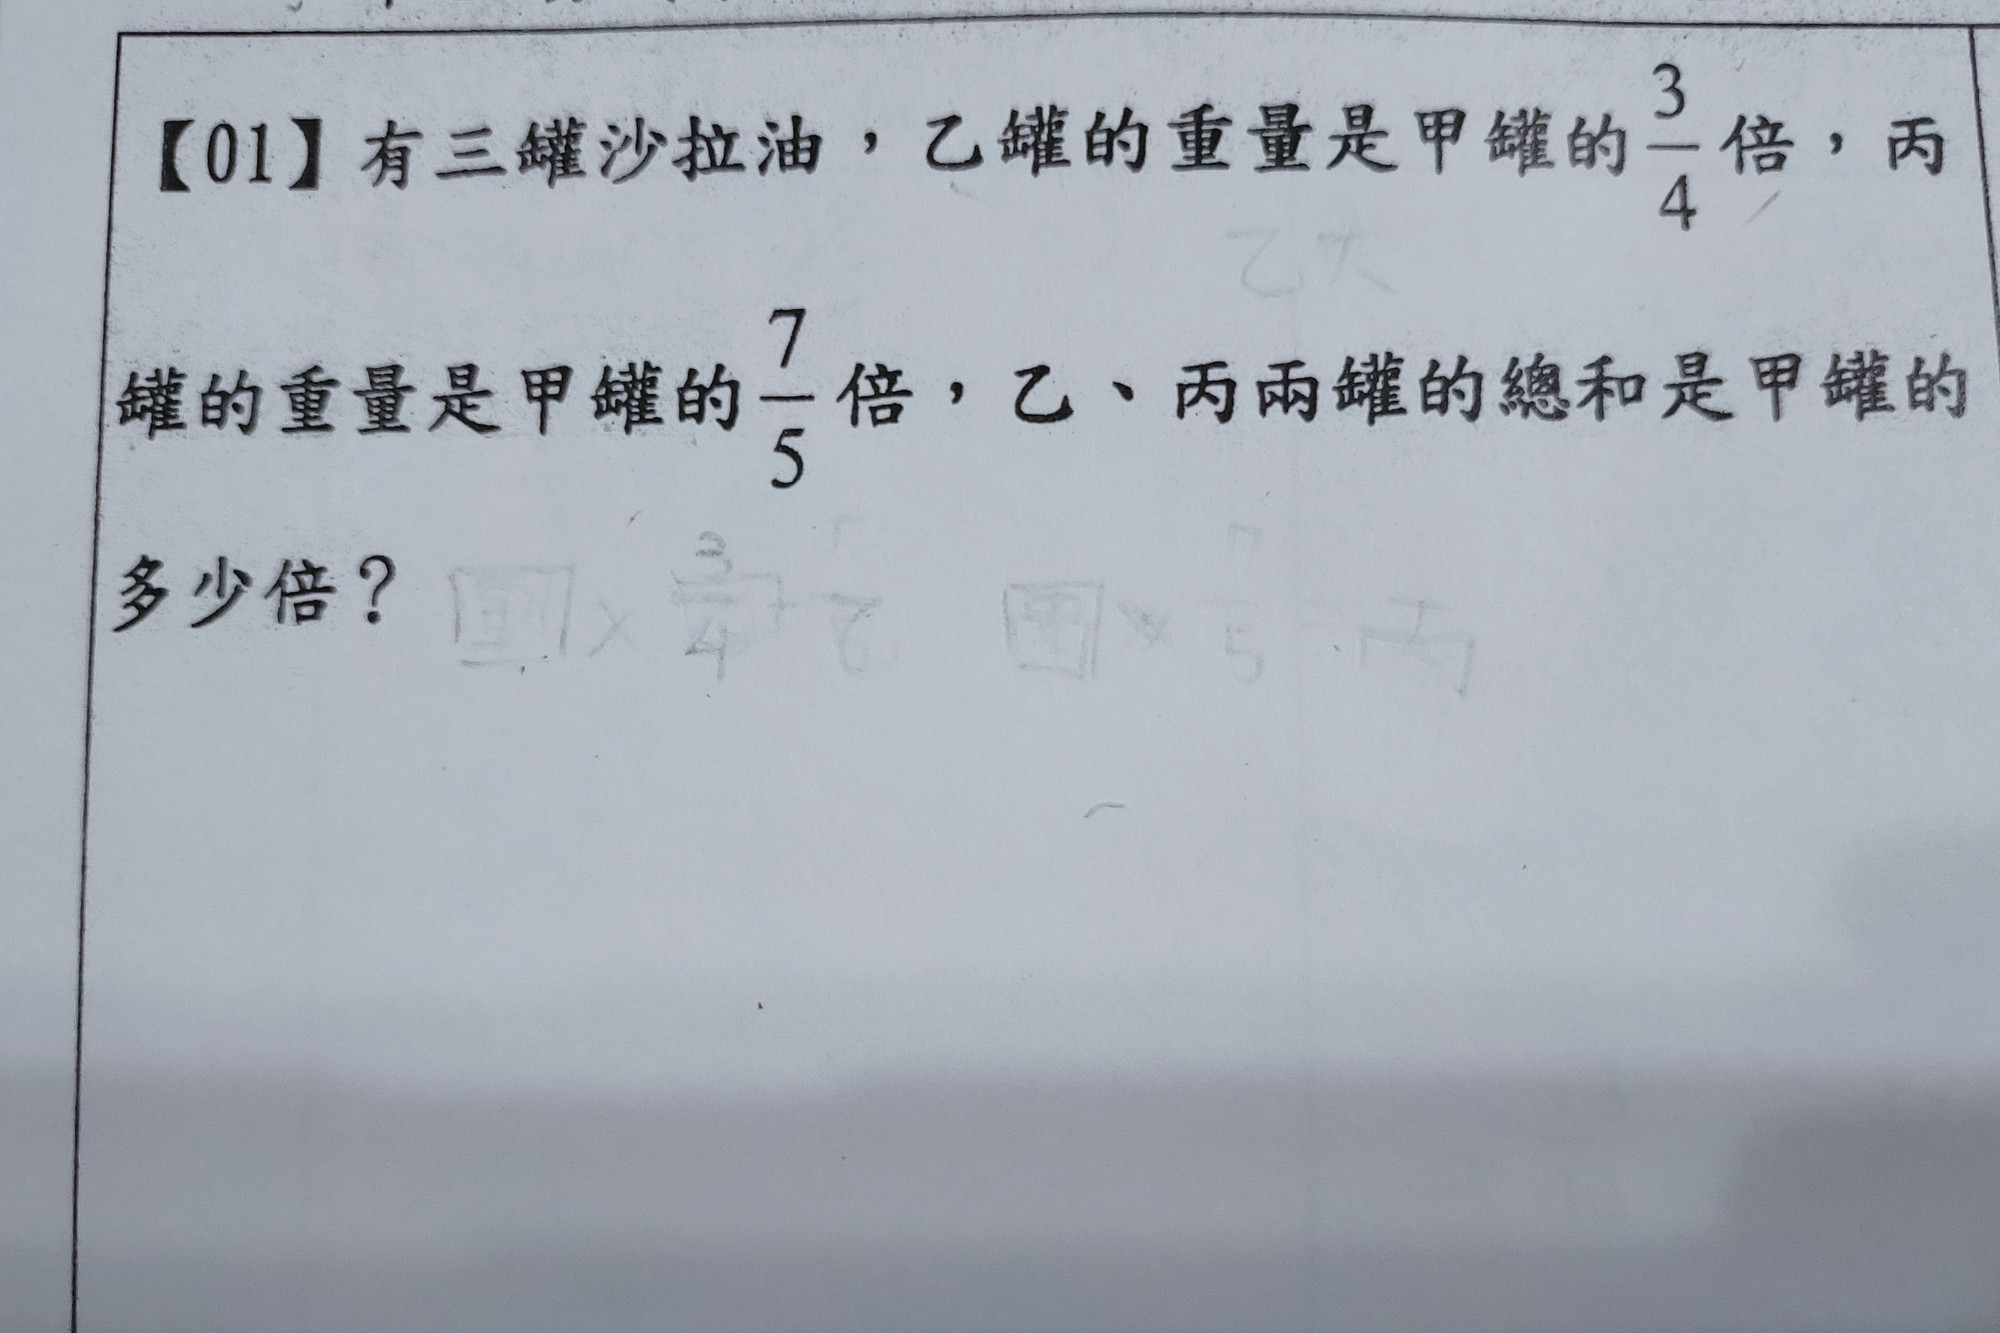 【01】有三罐沙拉油，乙罐的重量是甲罐的3/4倍，丙
罐的重量是甲罐的7/5倍，乙、丙兩罐的總和是甲罐的
多少倍？